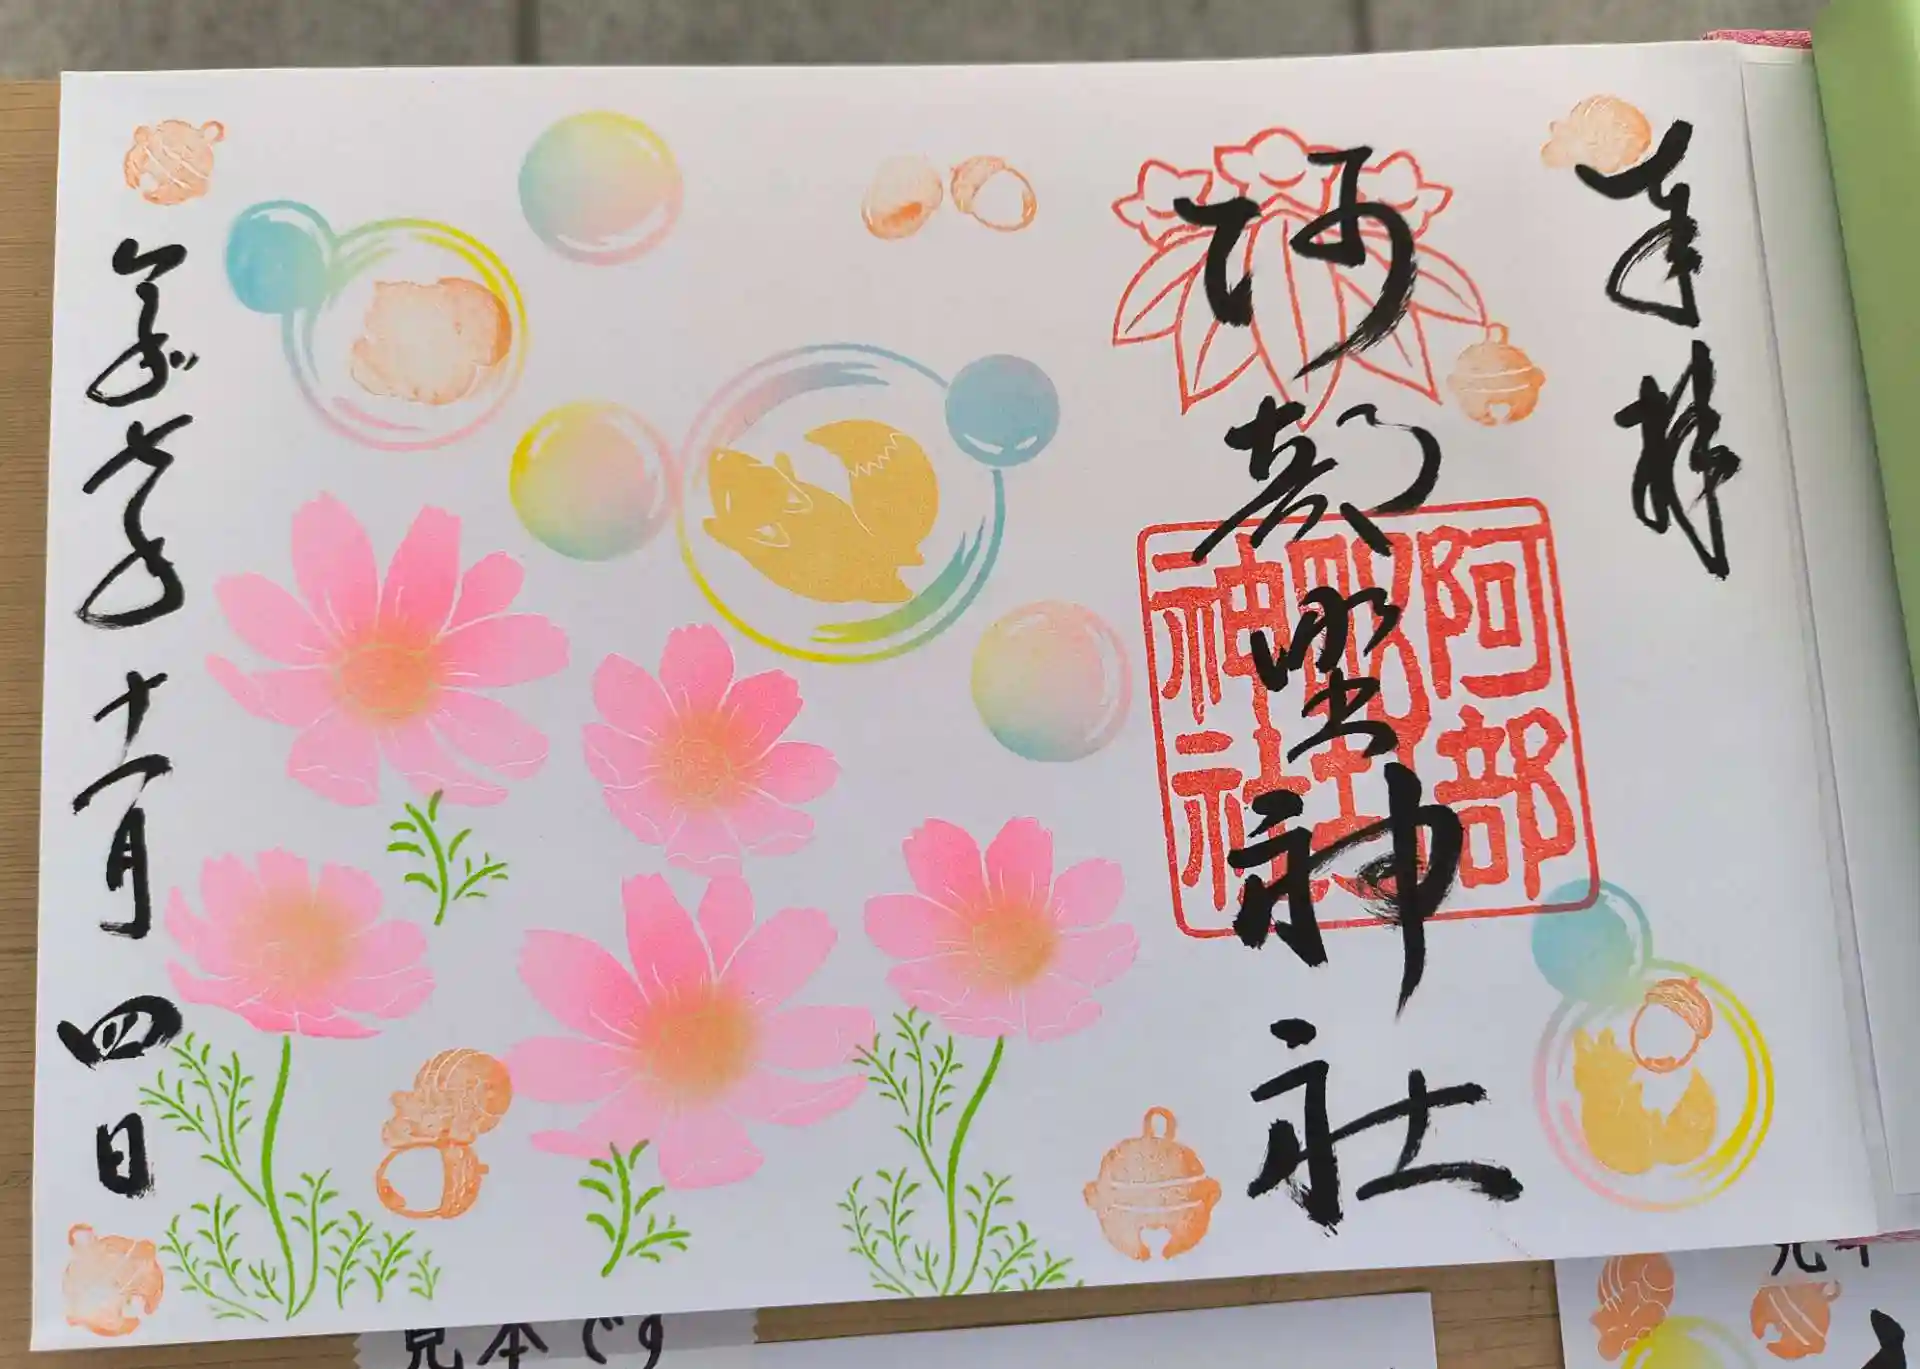 奉拝
阿部野神社
阿部野神社
令和七年十一月四日
見本です